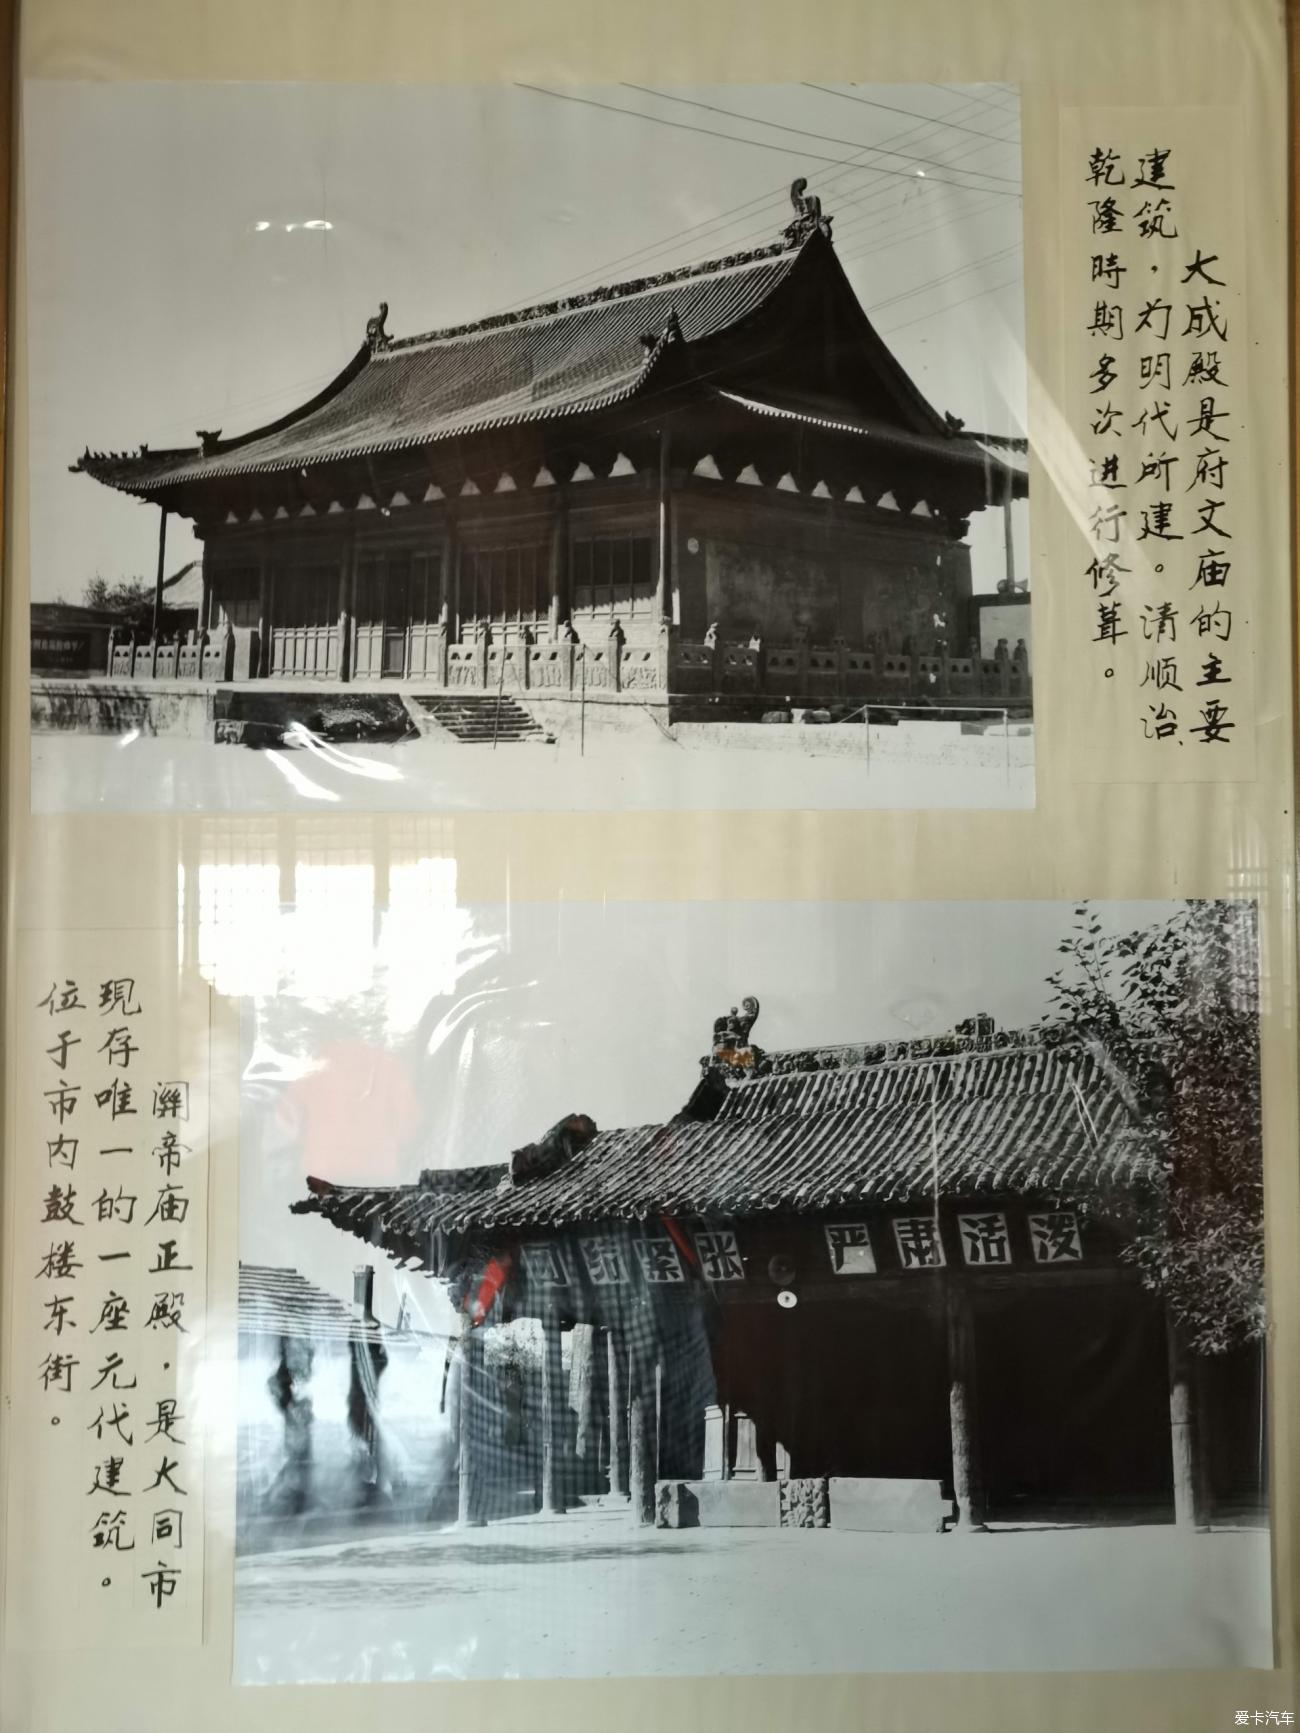 大成殿是府文庙的主要
建筑，为明代所建。清顺治、
乾隆時期多次进行修葺。
张紧结团
严肃活泼
関帝庙正殿，是大同市
现存唯一的一座元代建筑。
位于市内鼓楼东街。
爱卡汽车